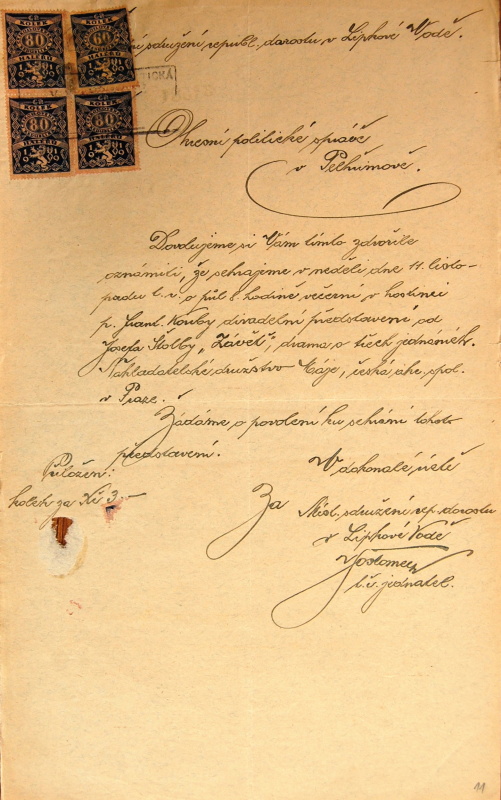 ní sdružení republ. dorostu v Lipkové Vodě.
Okresní politické správě
v Pelhřimově.
Dovolujeme si Vám tímto zdvořile
oznámiti, že sehrajeme v neděli dne 11. listo-
padu t. r. o půl 8. hodině večerní v hostinci
p. Frant. Kouby divadelní představení od
Josefa Štolby „Závěť“, drama o třech jednáních.
Nakladatelské družstvo Máje, česká akc. spol.
v Praze.
Žádáme o povolení ku sehrání tohoto
představení.
Přiložen:
kolek za Kč 3.-
V dokonalé úctě
Za Míst. sdružení rep. dorostu
v Lipkové Vodě
t. č. jednatel.
KOLEK
80
HALÉŘŮ
KOLEK
60
HALÉŘŮ
KOLEK
80
HALÉŘŮ
KOLEK
80
HALÉŘŮ
11